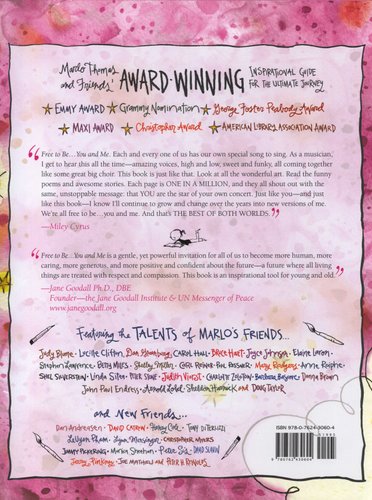 Marlo Thomas
and Friends' AWARD-WINNING INSPIRATIONAL GUIDE
FOR THE ULTIMATE JOURNEY
★ EMMY AWARD ★ Grammy Nomination ★ George Foster Peabody Award
★ MAXI AWARD ★ Christopher Award ★ AMERICAN LIBRARY ASSOCIATION AWARD
"Free to Be...You and Me. Each and every one of us has our own special song to sing. As a musician,
I get to hear this all the time—amazing voices, high and low, sweet and funky, all coming together
like some great big choir. This book is just like that. Look at all the wonderful art. Read the funny
poems and awesome stories. Each page is ONE IN A MILLION, and they all shout out with the same,
unstoppable message: that YOU are the star of your own concert. Just like you—and just
like this book—I know I'll continue to grow and change over the years into new versions of me.
We're all free to be...you and me. And that's THE BEST OF BOTH WORLDS."
—Miley Cyrus
"Free to Be...You and Me is a gentle, yet powerful invitation for all of us to become more human, more
caring, more generous, and more positive and confident about the future—a future where all living
things are treated with respect and compassion. This book is an inspirational tool for young and old."
—Jane Goodall Ph.D., DBE
Founder—the Jane Goodall Institute & UN Messenger of Peace
www.janegoodall.org
Featuring the TALENTS OF MARLO'S FRIENDS...
Judy Blume • Lucille Clifton • Dan Greenburg • CAROL HALL • BRUCE HART • Joyce Johnson • Elaine Laron
Stephen Lawrence • BETTY MILES • Shelly Miller • CARL REINER • Bob Reisner • Mary Rodgers • Anne Roiphe
SHEL SILVERSTEIN • Linda Sitea • PETER STONE • Judith Viorst • CHARLOTTE ZOLOTOW • Barbara Bascove • Donna Brown
John Paul Endress • Arnold Lobel • Sheldon Harnick and DOUG TAYLOR
and New Friends...
Dan Andreasen • DAVID CATROW • Henry Cole • TONY DITERLIZZI
LeUyen Pham • Lynn Munsinger • CHRISTOPHER MYERS
JIMMY PICKERING • Marla Sheehan • Peter Sís • DAVID SLAVIN
Jerry Pinkney • JOE MATHIEU and PETER H. REYNOLDS
ISBN 978-0-7624-3060-4
9 780762 430604